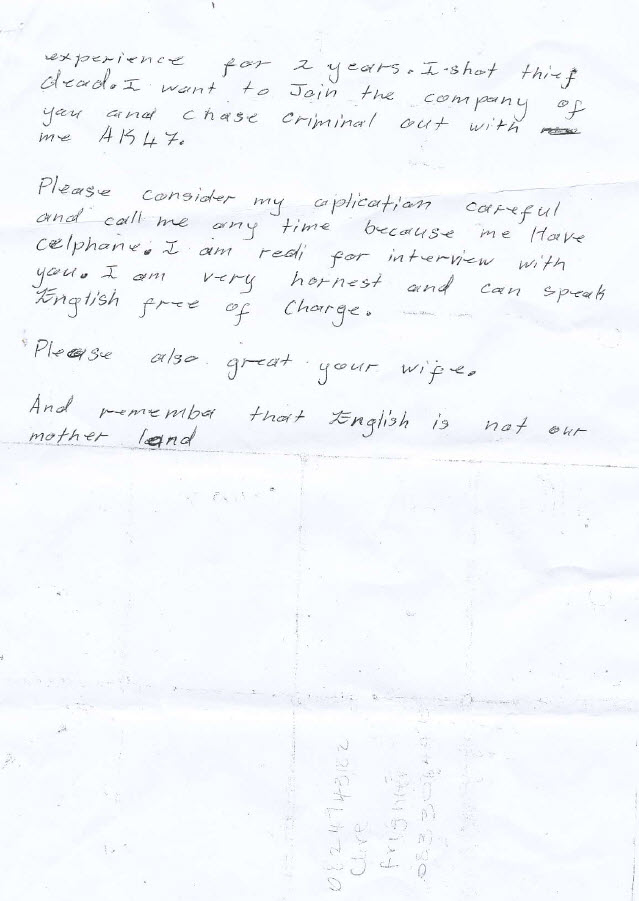 experience for 2 years. I shot thief
dead. I want to Join the company of
you and chase criminal out with
me AK47.
Please consider my aplication careful
and call me any time because me Have
celphane. I am redi for interview with
you. I am very hornest and can speak
English free of charge.
Please also great your wife.
And rememba that English is not our
mother land